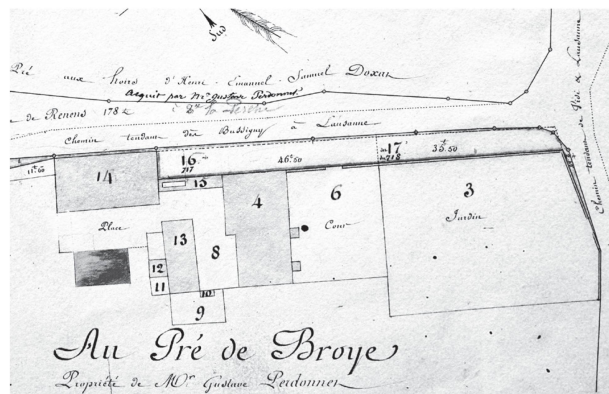 Sud
Pré aux hoirs d'Henri-Emanuel-Samuel Doxat
acquit par Mr Gustave Perdonnet
de Renens 178
Chemin tendant de Bussigny à Lausanne
Chemin tendant de Vidi de Lausanne
11.60
14
16
717
46.50
17
718
35.50
15
4
6
3
Place
13
8
Cour
Jardin
12
11
10
9
Au Pré de Broye
Propriété de Mr Gustave Perdonnet